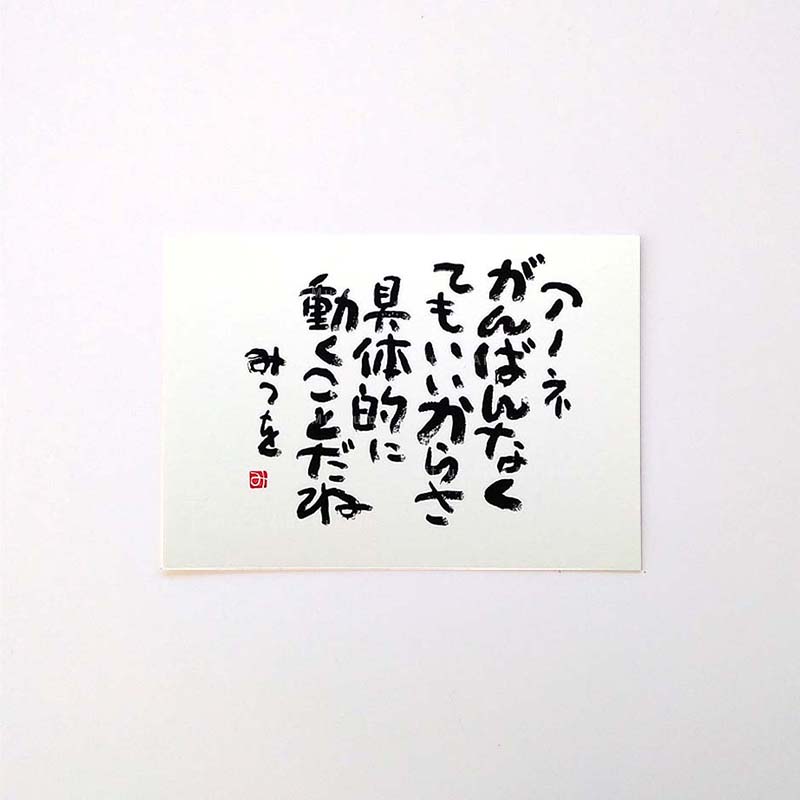 アノネ
がんばんなく
てもいいからさ
具体的に
動くことだね
みつを
み